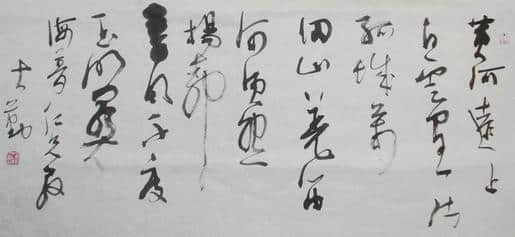 黄河遠上
白雲間一片
孤城萬
仞山羌笛
何須怨
楊柳
春風不度
玉門關
海音仁兄教